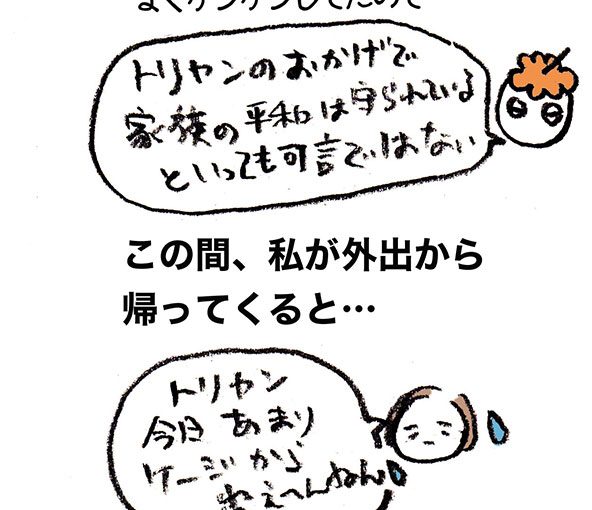 よくケンカしてたので
トリヤンのおかげで
家族の平和は守られている
といっても可言ではない
この間、私が外出から
帰ってくると…
トリヤン
今日 あまり
ケージから
出えへんねん